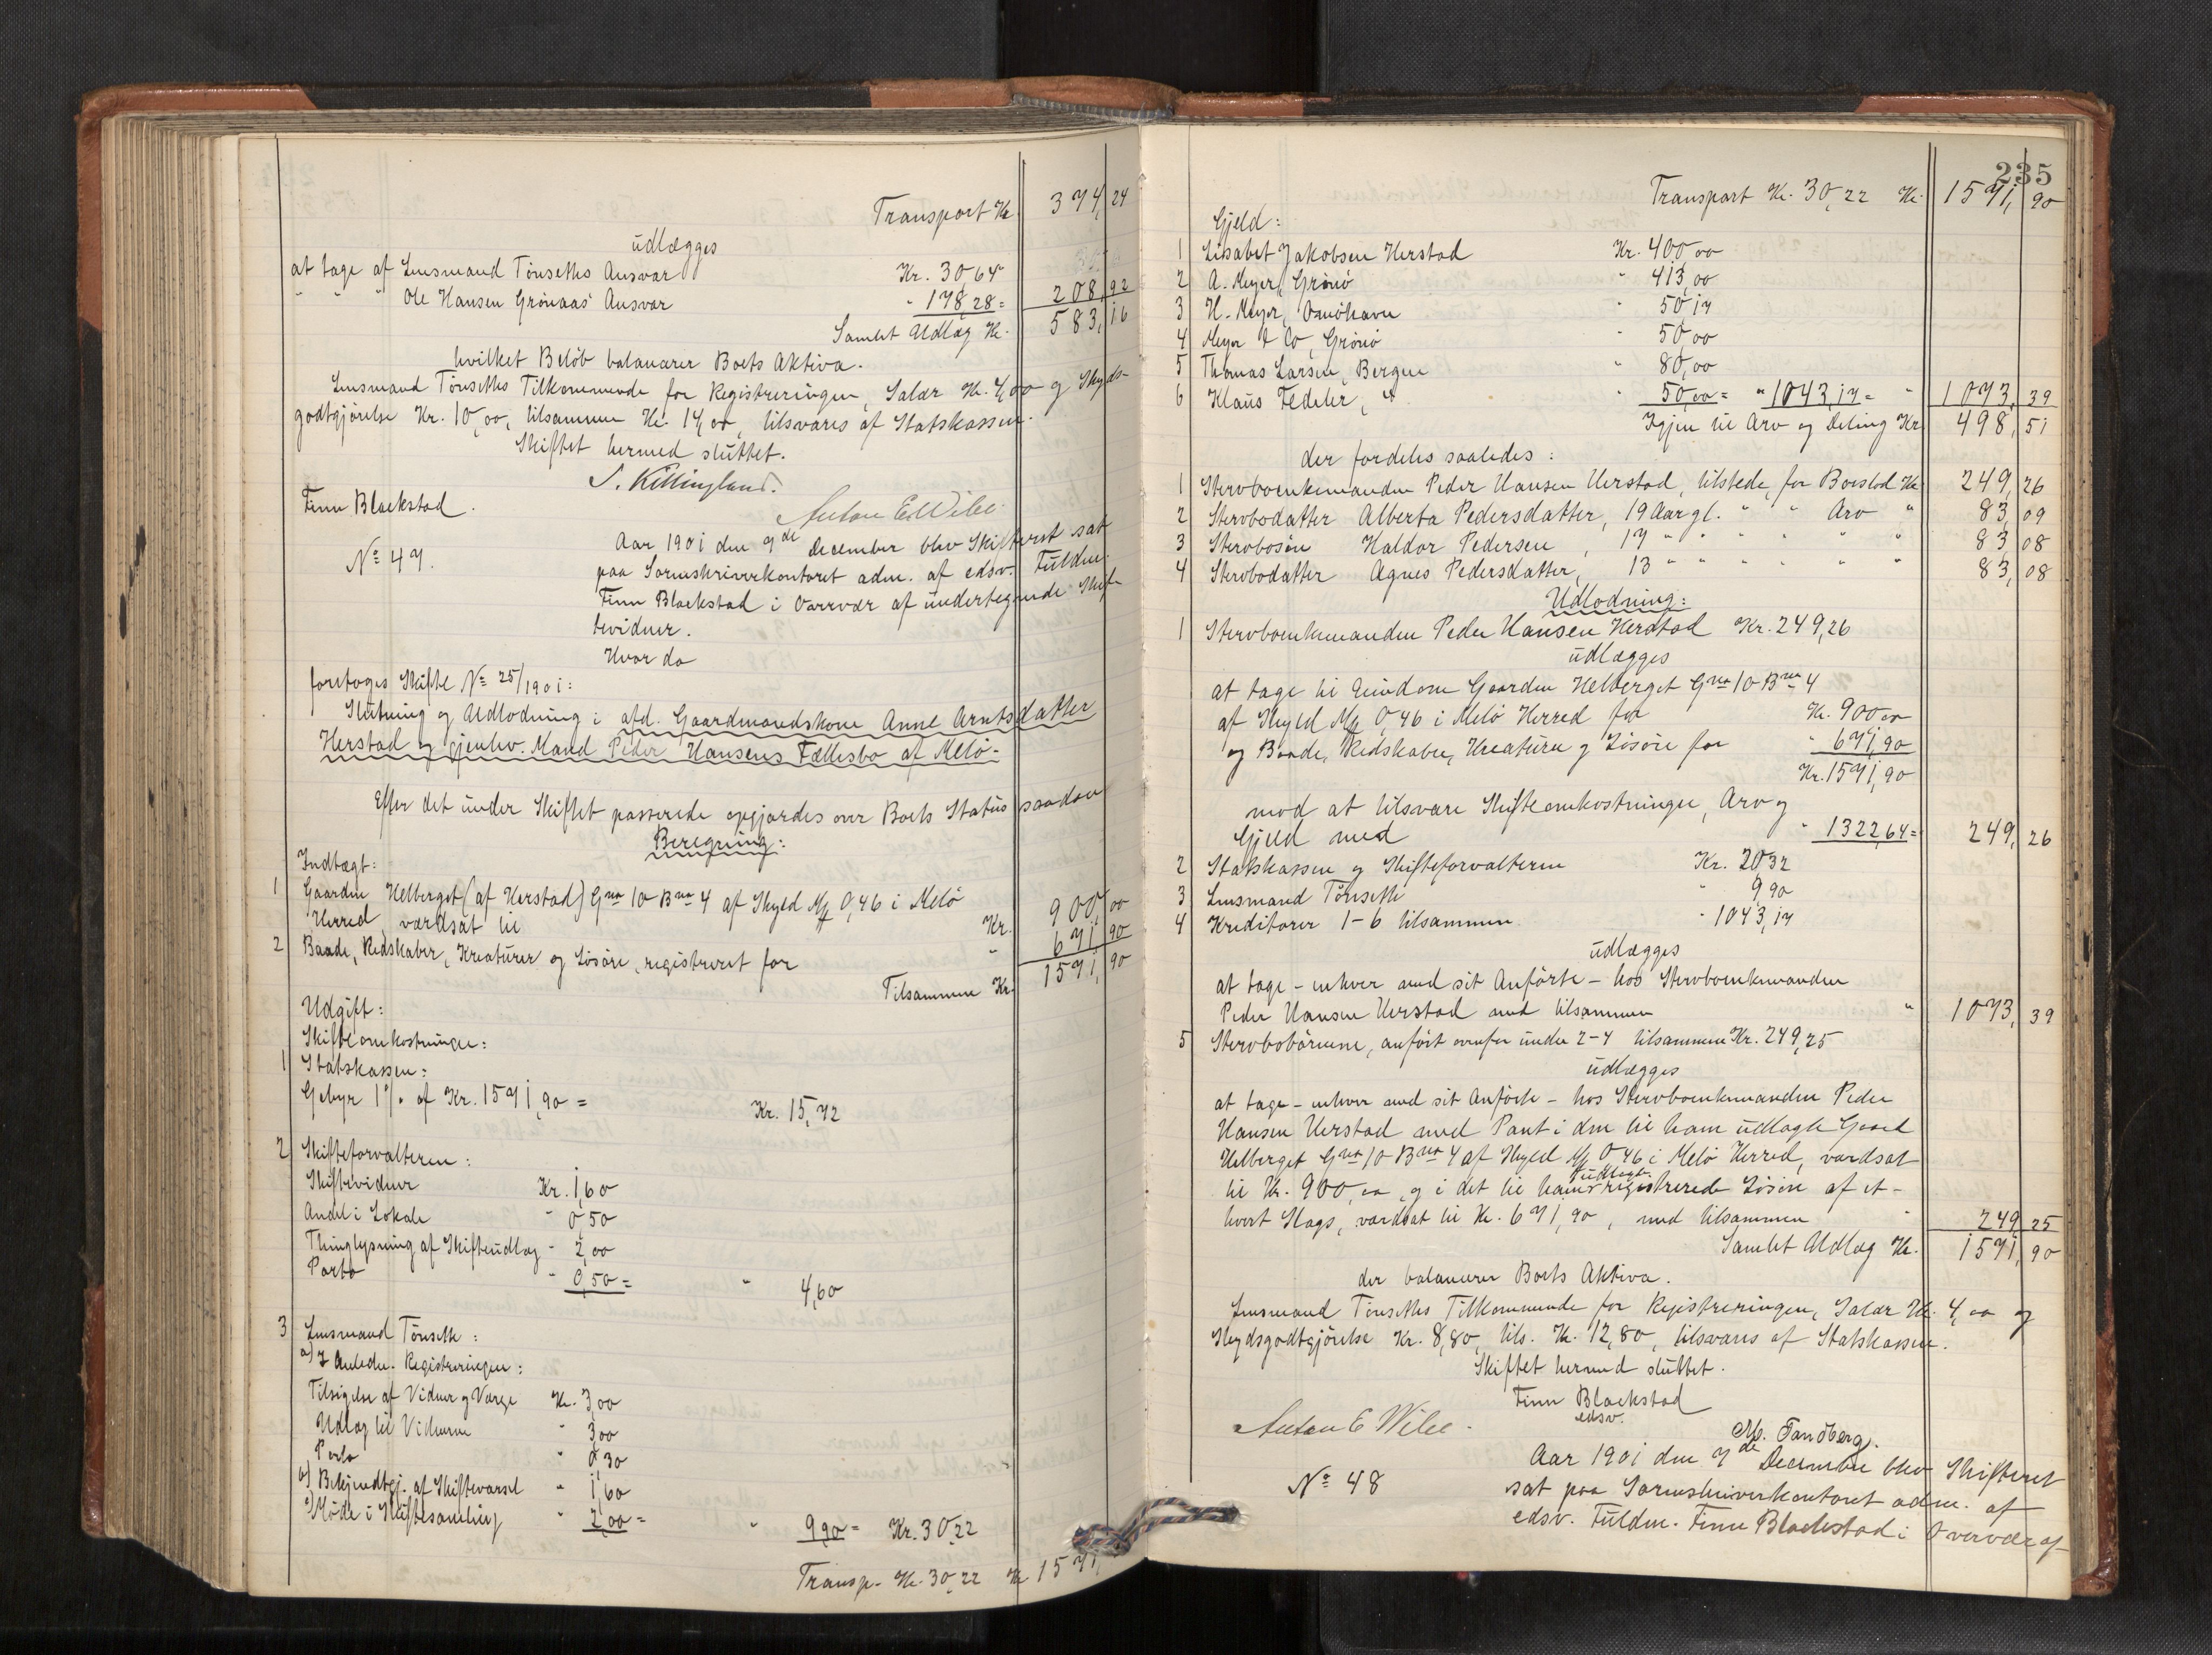 Transport Kr. 374,24
udlægges
at tage af Lensmand Tönseths Ansvar Kr. 30,64
" " " Ole Hansen Grönaas' Ansvar " 178,28 = 208,92
Samlet Udlæg Kr. 583,16
hvilket Belöb balancerer Boets Aktiva.
Lensmand Tönseths Tilkommende for Registreringen, Salær Kr. 4,00 og Skyds-
godtgjörelse Kr. 10,00, tilsammen Kr. 14,00, tilsvares af Statskassen.
Skiftet hermed sluttet.
S. Killingland.
Finn Blackstad.
Anton E. Wibe
No 47.
Aar 1901 den 7de December blev Skifteret sat
paa Sorenskriverkontoret adm. af edsv. Fuldm.
Finn Blackstad i Overvær af undertegnede Skif-
tevidner.
Hvor da
foretoges Skifte No 25/1901:
Slutning og Udlodning i afd. Gaardmandskone Anne Arntsdatter
Herstad og gjenlev. Mand Peder Hansens Fællesbo af Melö.
Efter det under Skiftet passerede opgjordes over Boets Status saadan
Beregning:
Indtægt:
1 Gaarden Helberget (af Herstad) Gno 10 Bno 4 af Skyld Mk 0,46 i Melö
Herred værdsat til Kr. 900,00
2 Baade, Redskaber, Kreaturer og Lösöre, registreret for " 671,90
Tilsammen Kr. 1571,90
Udgift:
Skifteomkostninger:
1 Statskassen:
Gebyr 1% af Kr. 1571,90 = Kr. 15,72
2 Skifteforvalteren:
Skiftevidner Kr. 1,60
Andel i Lokale " 0,50
Thinglysning af Skifteudlæg " 2,00
Porto " 0,50 = " 4,60
3 Lensmand Tönseth:
a) I Anledn. Registreringen:
Tilsigelse af Vidner og Værge Kr. 3,00
Udlæg til Vidnerne " 3,00
Porto " 0,30
b) Bekjendtgj. af Skiftevarsel " 1,60
c) Möde i Skiftesamling " 2,00 = " 9,90 = Kr. 30,22
Transp. Kr. 30,22 Kr. 1571,
235
Transport Kr. 30,22 Kr. 1571,90
Gjeld:
1 Lisabet Jakobsen Herstad Kr. 400,00
2 A. Meyer, Grönö " 413,00
3 H. Meyer, Vaaghavn " 50,17
4 Meyer & Co, Grönö " 50,00
5 Thomas Larsen, Bergen " 80,00
6 Klaus Fedeler, " " 50,00 = " 1043,17 = " 1073,39
Igjen til Arv og Deling Kr. 498,51
der fordeles saaledes:
1 Stervboenkemanden Peder Hansen Herstad, tilstede, for Boeslod Kr. 249,26
2 Stervbodatter Alberta Pedersdatter, 19 Aar gl. " " Arv " 83,09
3 Stervbosön Haldor Pedersen, 17 " " " " " " 83,08
4 Stervbodatter Agnes Pedersdatter, 13 " " " " " " 83,08
Udlodning:
1 Stervboenkemanden Peder Hansen Herstad Kr. 249,26
udlægges
at tage til Eiendom Gaarden Helberget Gno 10 Bno 4
af Skyld Mk 0,46 i Melö Herred for Kr. 900,00
og Baade, Redskaber, Kreaturer og Lösöre for " 671,90
Kr. 1571,90
mod at tilsvare Skifteomkostninger, Arv og
Gjeld med " 1322,64 = 249,26
2 Statskassen og Skifteforvalteren Kr. 20,32
3 Lensmand Tönseth " 9,90
4 Kreditorer 1-6 tilsammen " 1043,17
udlægges
at tage - enhver med sit Anförte - hos Stervboenkemanden
Peder Hansen Herstad med tilsammen " 1073,39
5 Stervbobörnene, anfört ovenfor under 2-4 tilsammen Kr. 249,25
udlægges
at tage - enhver med sit Anförte - hos Stervboenkemanden Peder
Hansen Herstad med Pant i den til ham udlagte Gaard
Helberget Gno 10 Bno 4 af Skyld Mk 0,46 i Melö Herred, værdsat
til Kr. 900,00, og i det til ham udlagte registrerede Lösöre af et-
hvert Slags, værdsat til Kr. 671,90, med tilsammen " 249,25
Samlet Udlæg Kr. 1571,90
der balancerer Boets Aktiva.
Lensmand Tönseths Tilkommende for Registreringen, Salær Kr. 4,00 og
Skydsgodtgjörelse Kr. 8,80, tils. Kr. 12,80, tilsvares af Statskassen.
Skiftet hermed sluttet.
Finn Blackstad
edsv.
Anton E Wibe.
M. Tandberg.
No 48
Aar 1901 den 7de December blev Skifteret
sat paa Sorenskriverkontoret adm. af
edsv. Fuldm. Finn Blackstad i Overvær af